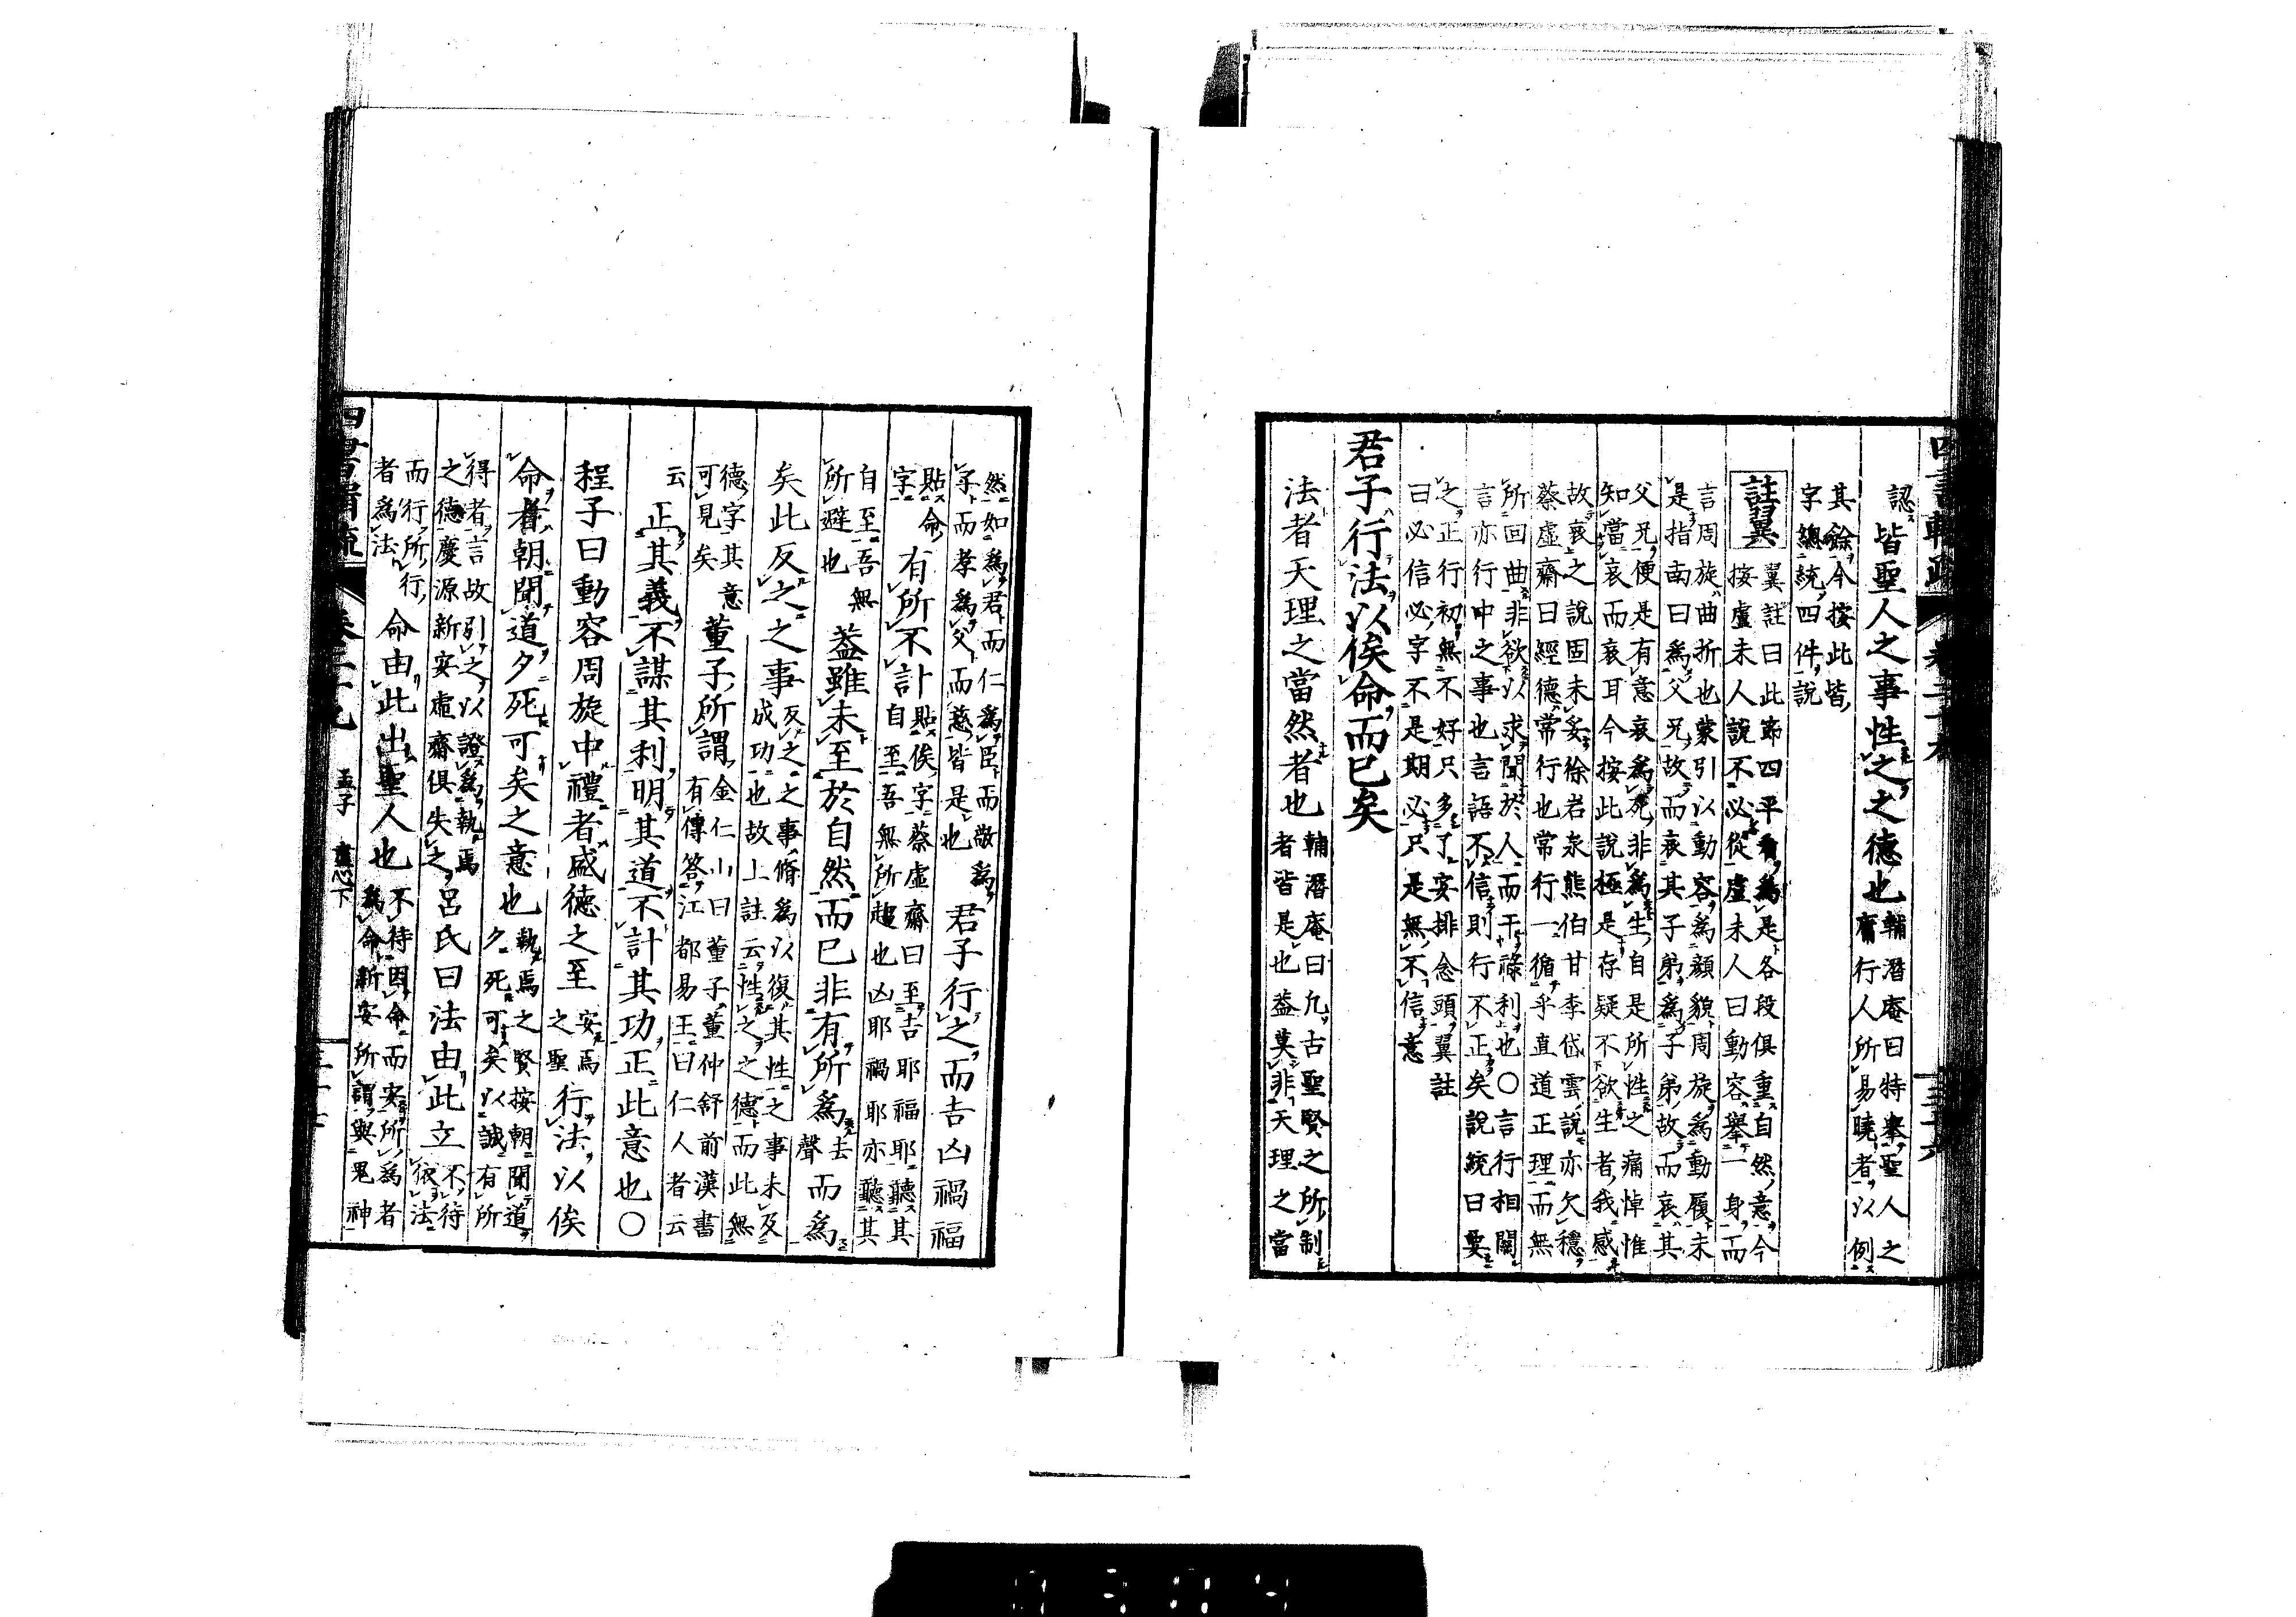 四書輯疏 卷二十九 二十六
認皆聖人之事性之之德也輔潛庵曰特舉聖人之
庸行人所易曉者以例
其餘今按此皆
字總統四件說
註翼翼註曰此節四平看爲是各段俱重自然意今
按盧未人說不必從盧未人曰動容舉一身而
言周旋曲折也蒙引以動容爲顏貌周旋爲動履未
是指南曰爲父兄故而哀其子弟爲子弟故而哀其
父兄便是有意哀爲死非爲生自是所性之痛悼惟
知當哀而哀耳今按此說極是存疑不欲生者我感
故哀之說固未妥徐岩泉熊伯甘李岱雲說亦欠穩
蔡虛齋曰經德常行也常行一循乎直道正理而無
所回曲非欲以求聞於人而干祿利也○言行相關
言亦行中之事也言語不信則行不正矣說統曰要
之正行初無不好只多了安排念頭翼註
曰必信必字不是期必只是無不信意
君子行法以俟命而已矣
法者天理之當然者也輔潛庵曰凡古聖賢之所制
者皆是也蓋莫非天理之當
然如爲君而仁爲臣而敬爲
子而孝爲父而慈皆是也君子行之而吉凶禍福
貼命
字有所不計貼俟字蔡虛齋曰至吉耶福耶聽其
自至吾無所趨也凶耶禍耶亦聽其
自至吾無
所避也蓋雖未至於自然而已非有所爲去聲而爲
矣此反之之事反之之事脩爲以復其性之事未及
成功也故上註云性之之德而此無
德字其意
可見矣董子所謂金仁山曰董子董仲舒前漢書
有傳答江都易王曰仁人者云
云正其義不謀其利明其道不計其功正此意也○
程子曰動容周旋中禮者盛德之至安焉之聖行法以俟
命者朝聞道夕死可矣之意也執焉之賢按朝聞道
夕死可矣以誠有所
得者言故引之以證爲執焉
之德慶源新安虛齋俱失之呂氏曰法由此立不待
依法
而行所行
者爲法命由此出聖人也不待因命而安所爲者
爲命新安所謂與鬼神
四書輯疏 卷二十九 孟子 盡心下